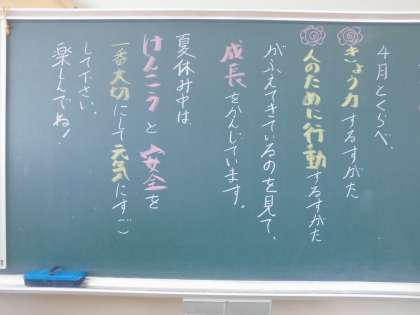 4月とくらべ、
きょう力するすがた
人のために行動するすがた
がふえてきているのを見て、
成長をかんじています。
夏休み中は
けんこうと安全を
一番大切にして元気にすご
して下さい。
楽しんでね!